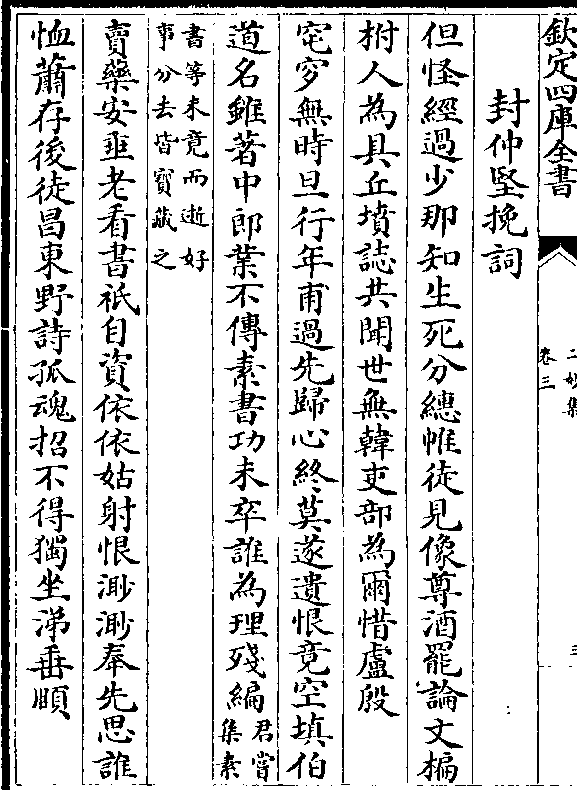 欽定四庫全書
二妙集
卷三
三
封仲堅挽詞
但怪經過少那知生死分總帷徒見像尊酒罷論文楄
柎人為具丘墳誌共聞世無韓吏部為爾惜盧殷
窀穸無時旦行年甫過先歸心終莫遂遺恨竟空填伯
道名雖著中郎業不傳素書功未卒誰為理殘編君嘗集素
書等未竟而逝好
事分去皆寳藏之
賣藥安垂老看書祇自資依依姑射恨渺渺奉先思誰
恤蕭存後徒昌東野詩孤魂招不得獨坐涕垂頤